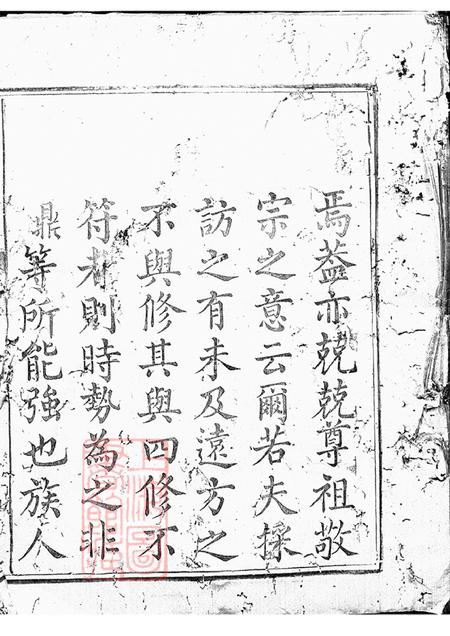 焉蓋亦兢兢尊祖敬
宗之意云爾若夫採
訪之有未及遠方之
不與修其與四修不
符者則時勢為之非
鼎等所能強也族人